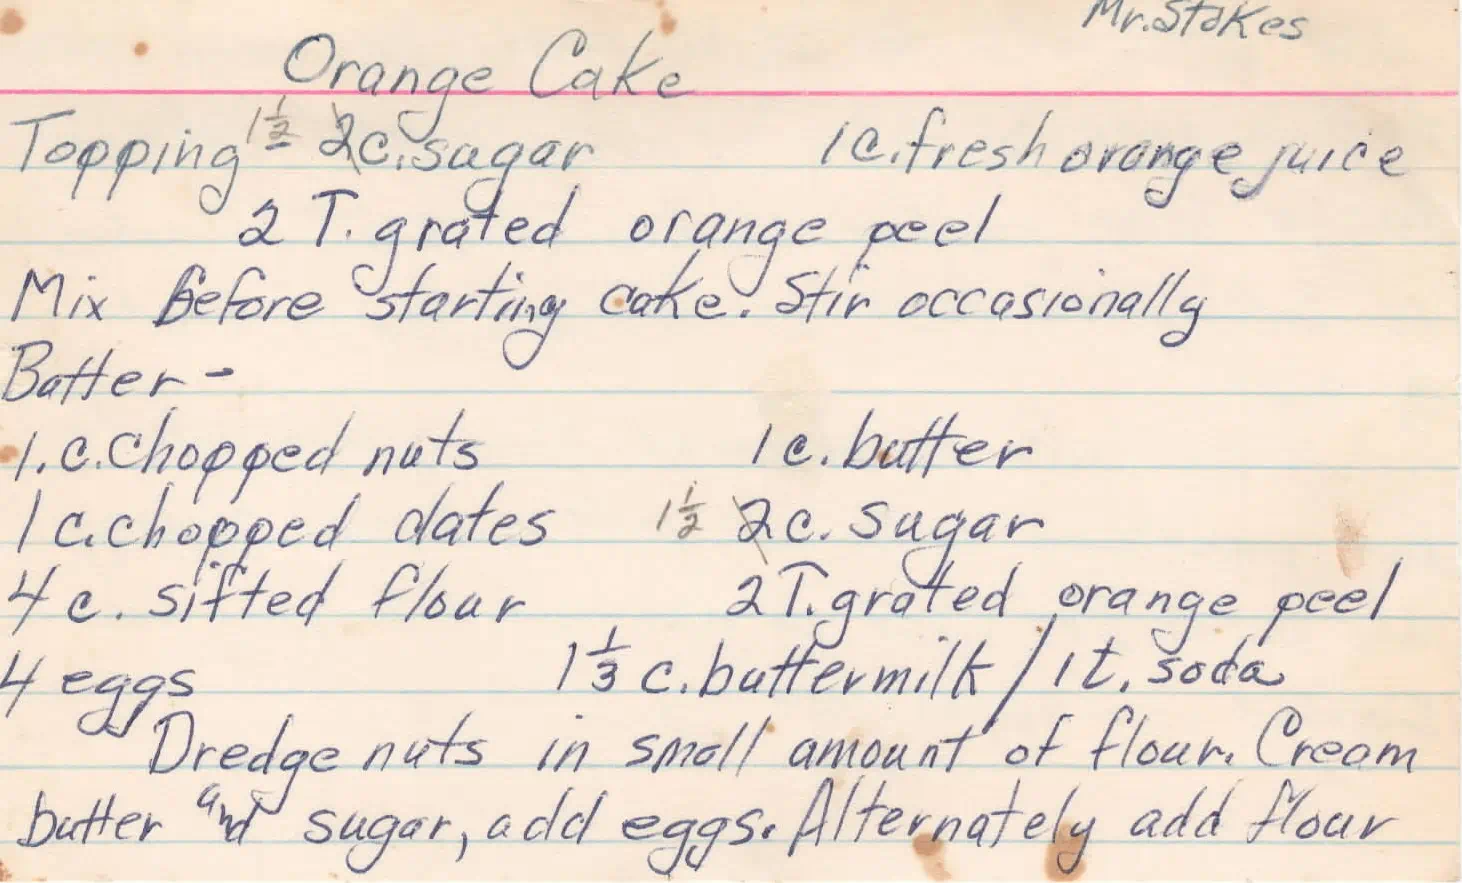 Mr. Stokes
Orange Cake
Topping 1 1/2 2c. sugar 1c. fresh orange juice
2 T. grated orange peel
Mix Before starting cake. Stir occasionally
Batter -
1. c. chopped nuts 1c. butter
1c. chopped dates 1 1/2 2c. sugar
4 c. sifted flour 2T. grated orange peel
4 eggs 1 1/3 c. buttermilk / 1t. soda
Dredge nuts in small amount of flour. Cream
butter and sugar, add eggs. Alternately add flour